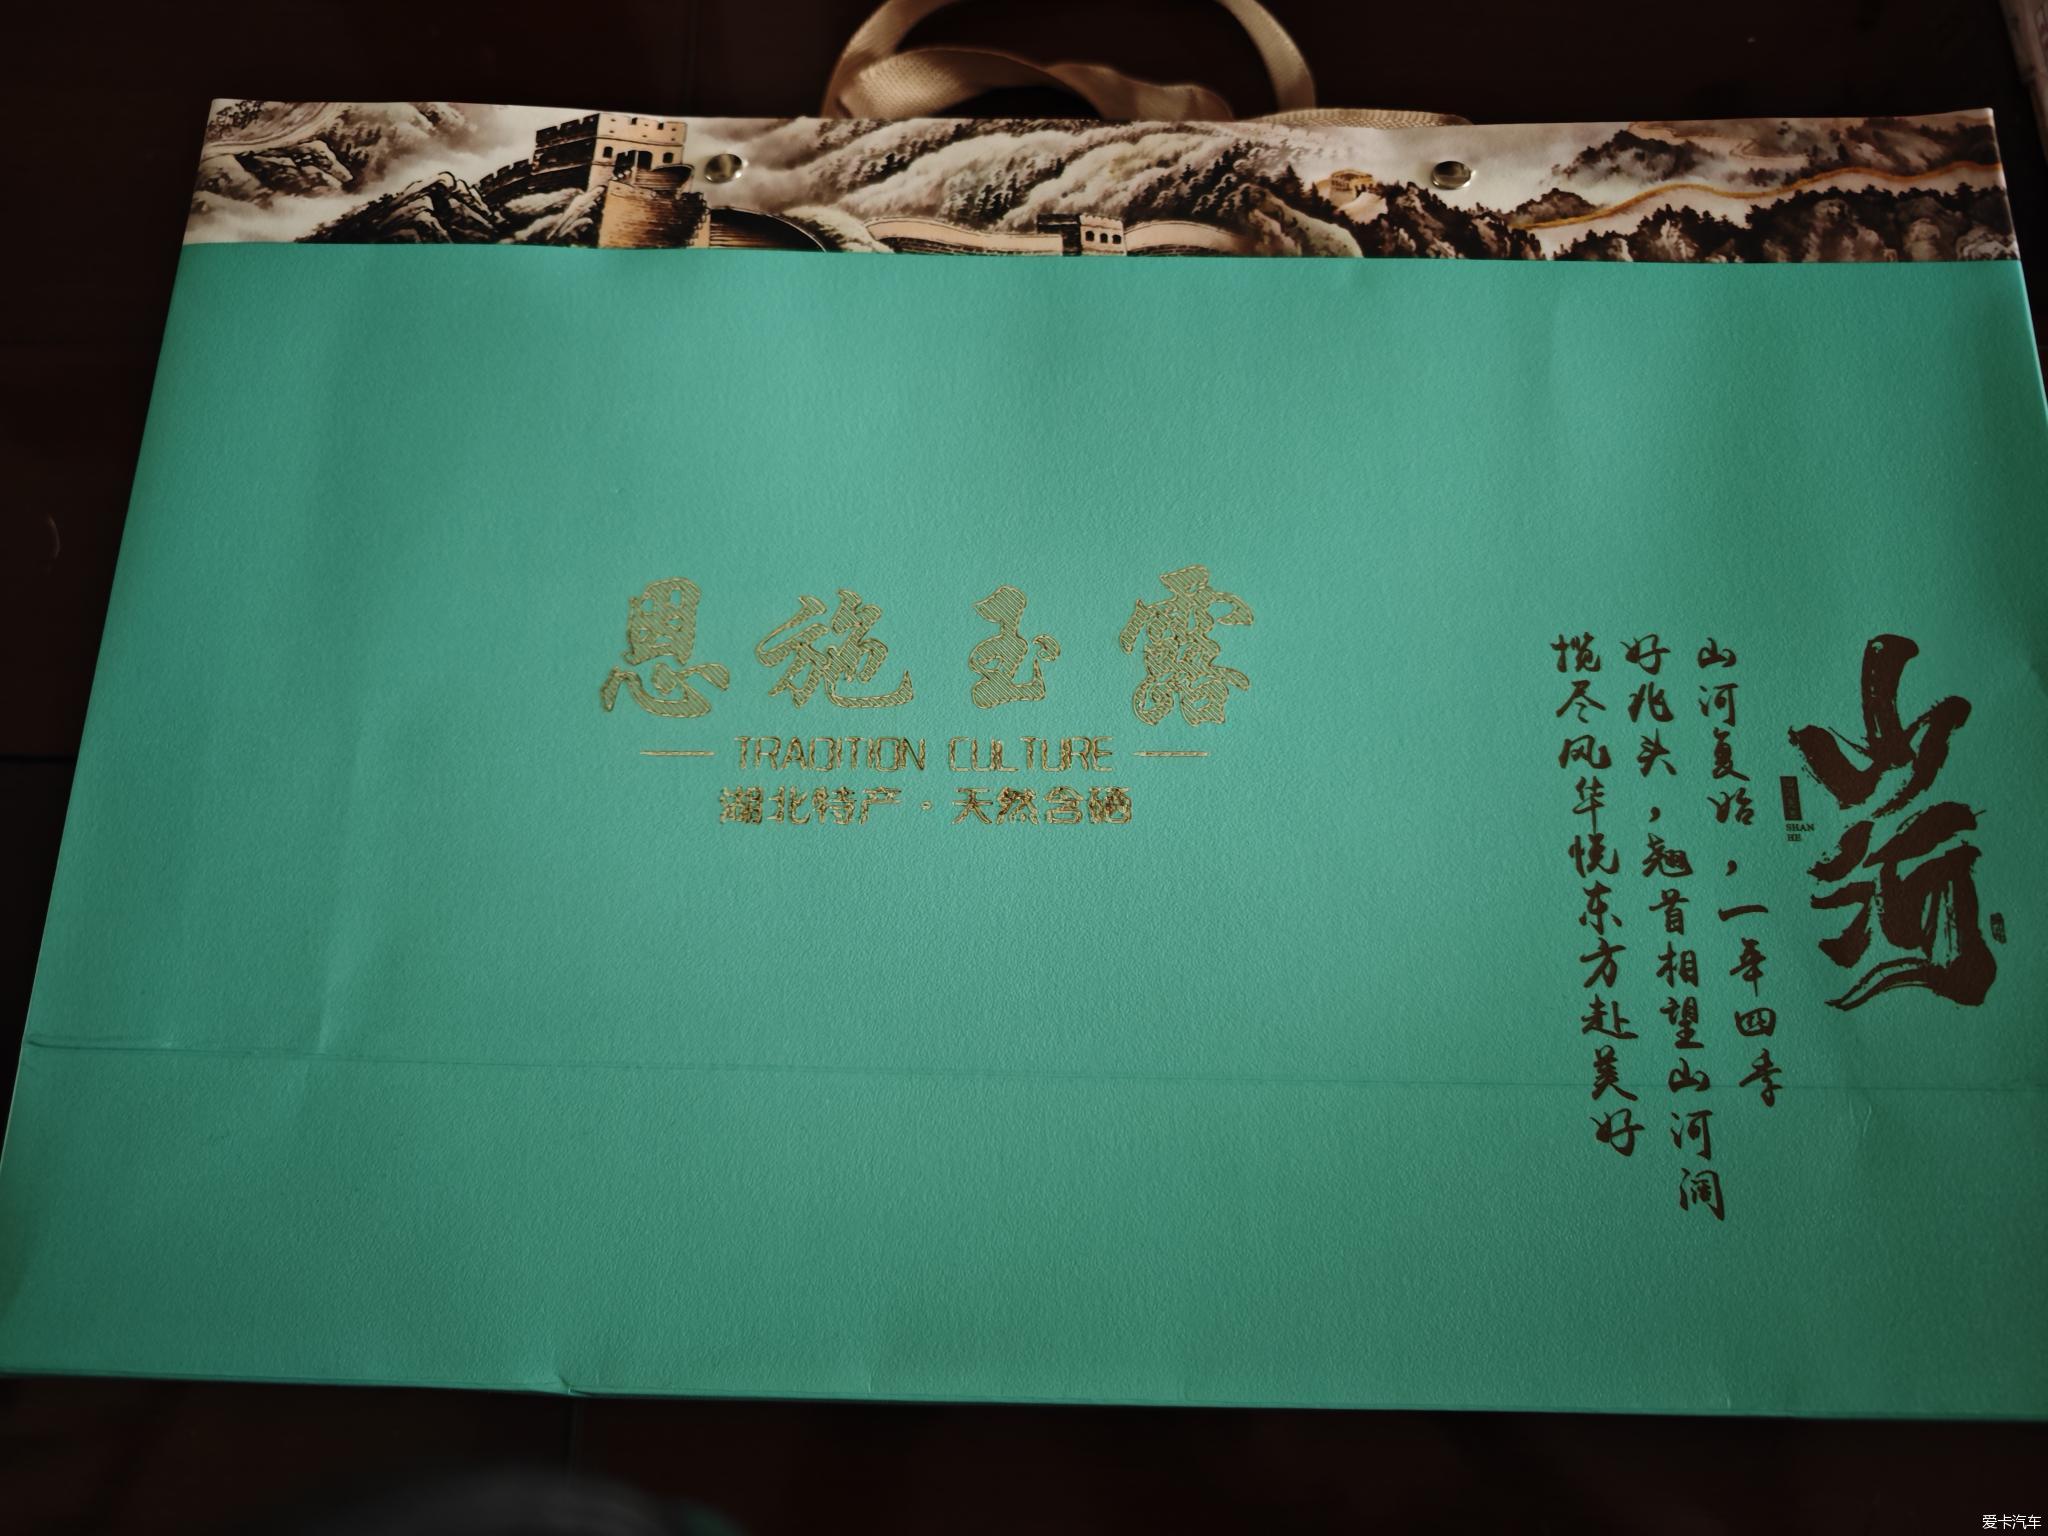 恩施玉露
TRADITION CULTURE
湖北特产·天然含硒
山河
SHAN
HE
山河复始，一年四季
好兆头，翘首相望山河阔
揽尽风华悦东方赴美好
爱卡汽车